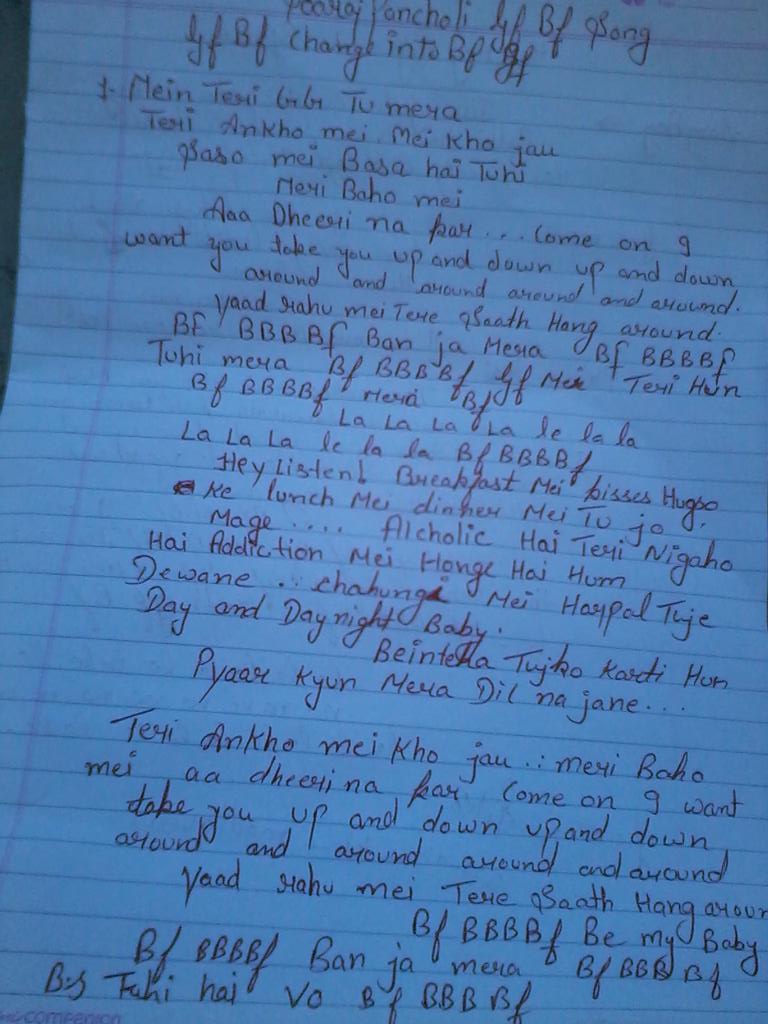 Sooraj Pancholi Gf Bf Song
Gf Bf Change into Bf gf
1. Mein Teri Tu mera
Teri Ankho mei Mei Kho jau
Saso mei Basa hai Tuhi
Meri Baho mei
Aaa Dheeri na kar ... Come on I
want you take you up and down up and down
around and around around and around.
Yaad rahu mei Tere Saath Hang around.
Bf BBBBf Ban ja Mera Bf BBBBf
Tuhi mera Bf BBBBf Gf Mei Teri Hun
Bf BBBBf Mera Bf
La La La La le la la
La La La le la la Bf BBBBf
Hey Listen! Breakfast Mei kisses Hugso
Ke lunch Mei dinner Mei Tu jo
Mage .... Alcholic Hai Teri Nigaho
Hai Addiction Mei Honge Hai Hum
Dewane .. chahungi Mei Harpal Tuje
Day and Day night Baby.
Beinteha Tujko Karti Hun
Pyaar Kyun Mera Dil na jane...
Teri Ankho mei Kho jau .. meri Baho
mei aa dheeri na kar Come on I want
take you up and down up and down
around and around around and around
Yaad rahu mei Tere Saath Hang aroun
Bf BBBBf Be my Baby
Bf BBBBf Ban ja mera Bf BBB Bf
Tuhi hai Vo Bf BBB Bf
companion